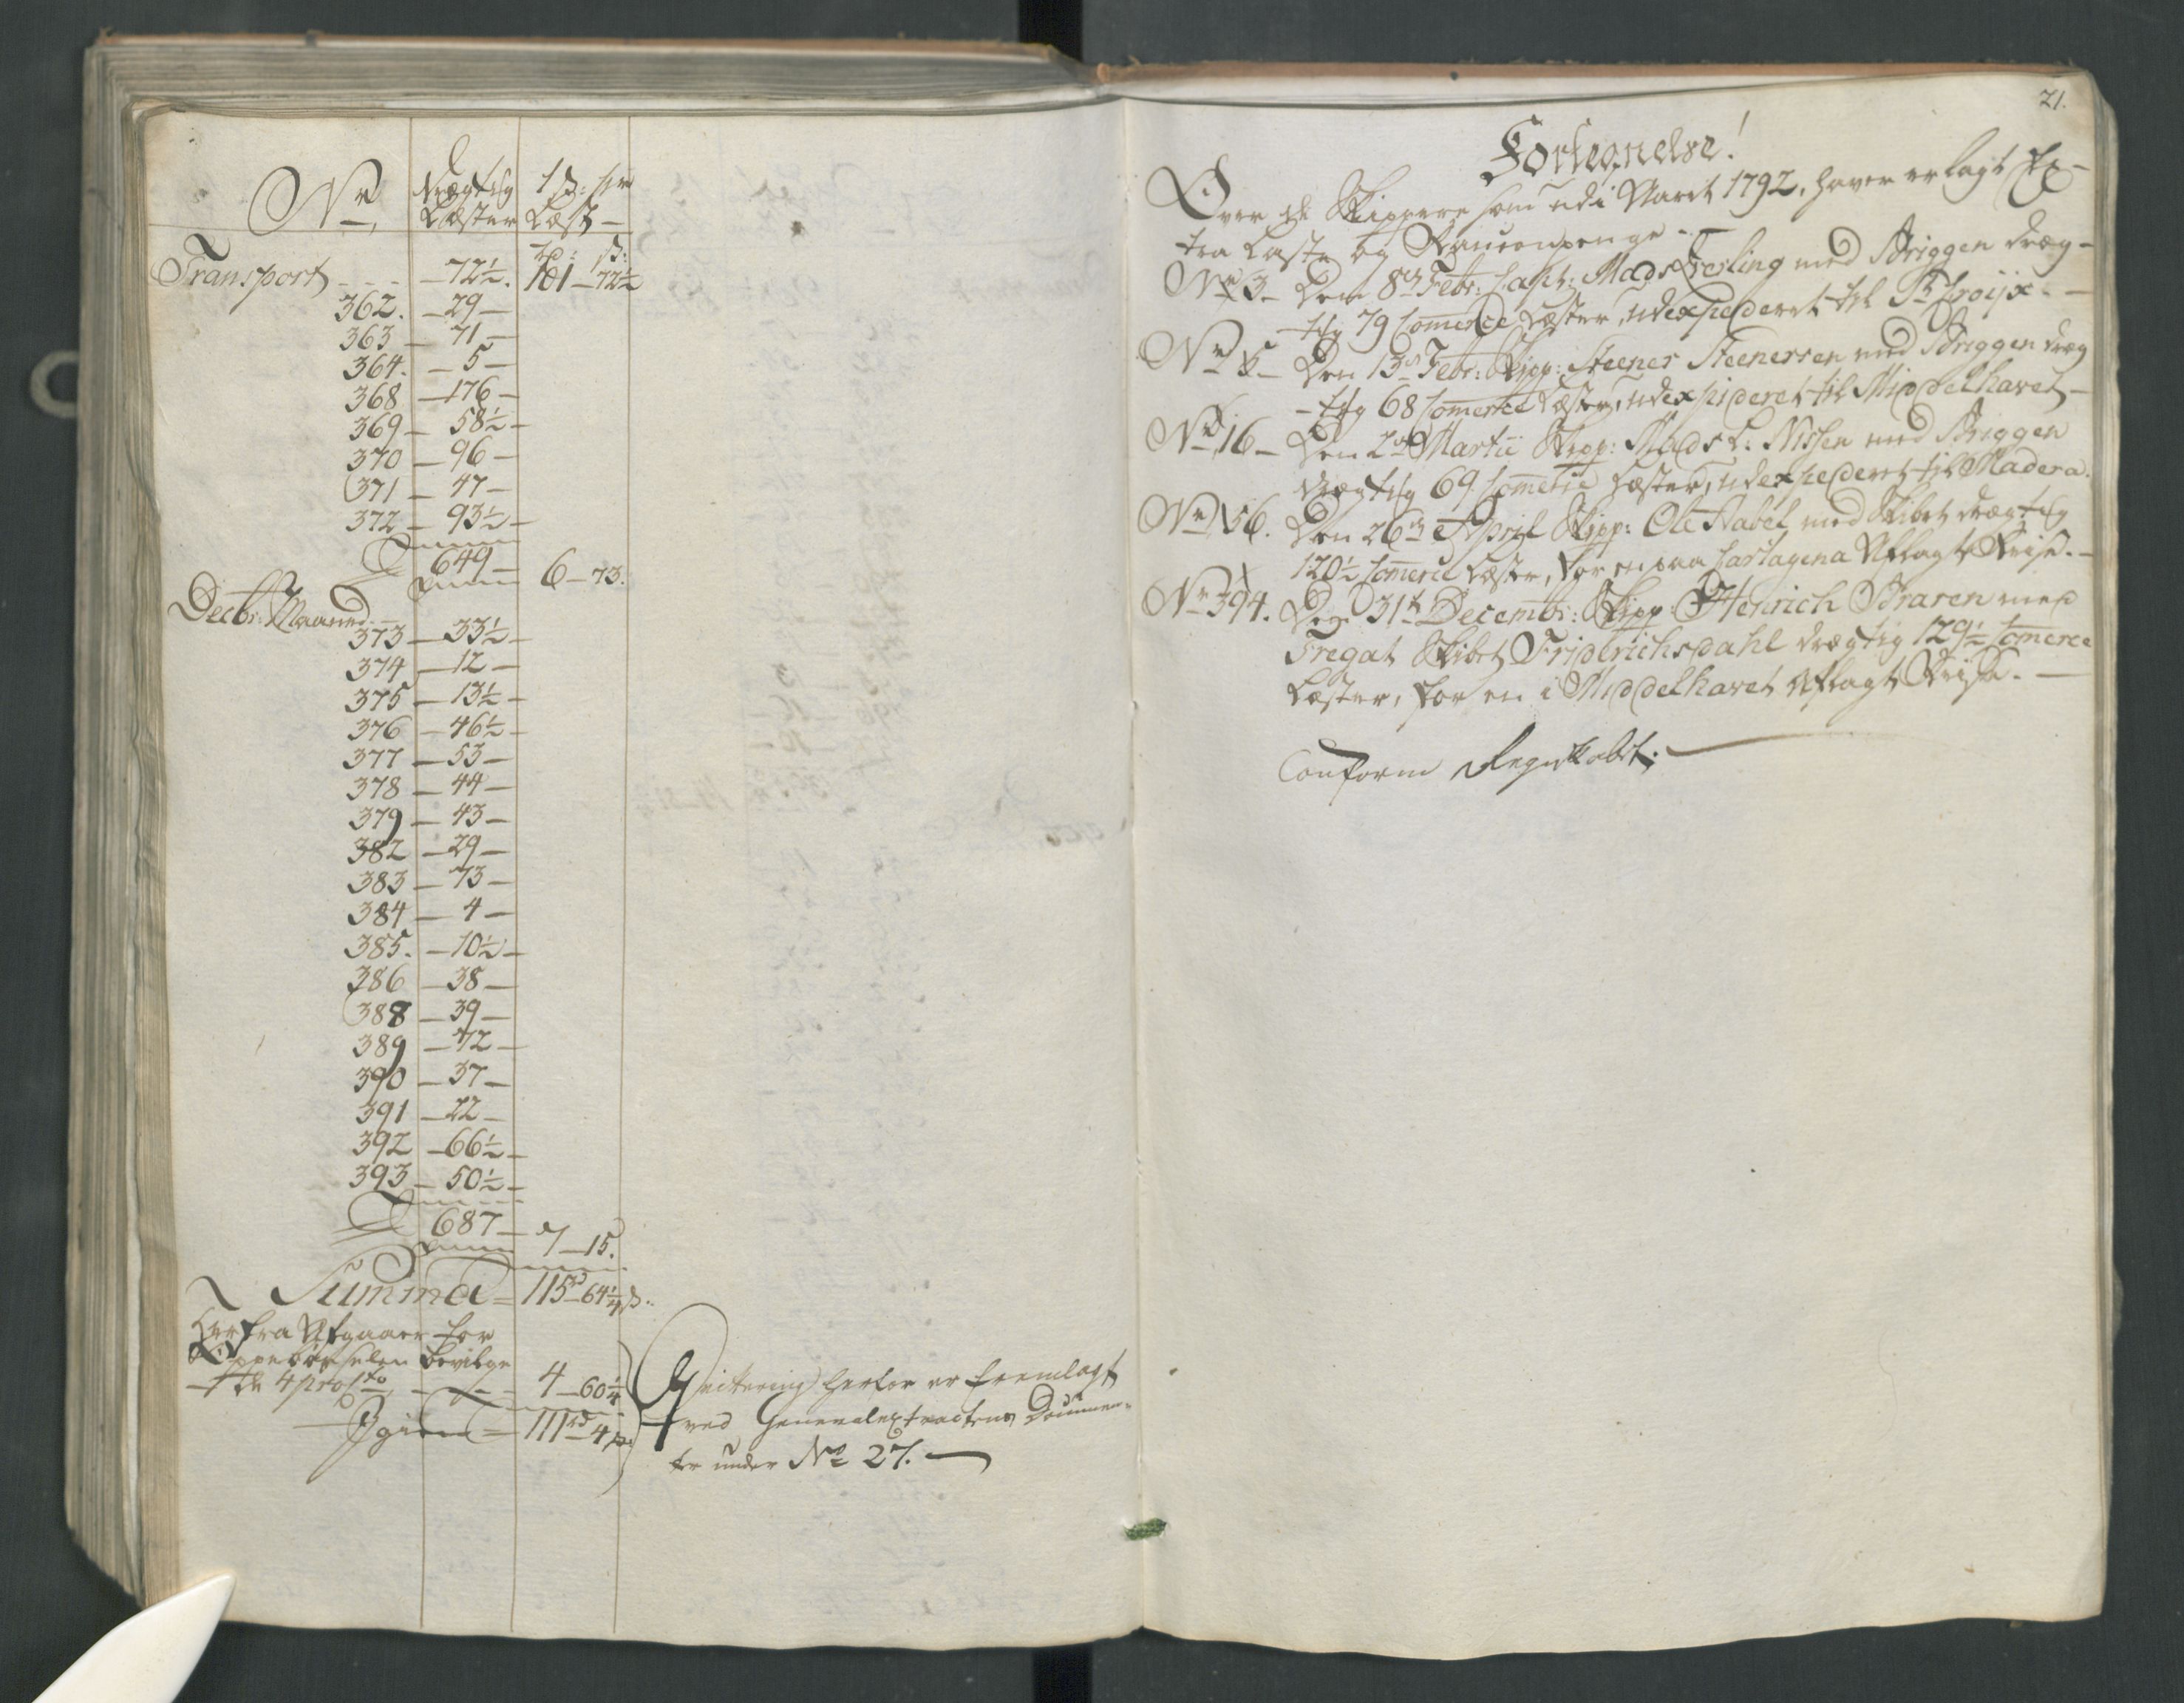 No Drægtig 1 ß: pr
Læster Læst
rd: ß:
Transport - - - 72½. 101 - 72½
362. - 29 -
363 - 71 -
364. - 5 -
368 - 176 -
369 - 58½ -
370 - 96 -
371 - 47 -
372 - 93½ -
649 - 6 - 73.
Decbr: Maaned
373 - 33½ -
374 - 12 -
375 - 13½ -
376 - 46½ -
377 - 53 -
378 - 44 -
379 - 43 -
382 - 29 -
383 - 73 -
384 - 4 -
385. - 10½ -
386 - 38 -
388 - 39 -
389 - 72 -
390 - 37 -
391 - 22 -
392 - 66½ -
393 - 50½ -
687 - 7 - 15.
Summa = 115 rd 64¼ ß.
Herfra Afgaaer for
Oppebørselen bevilge
- de 4 proCto - - - 4 - 60¼
Igien = 111 rd 4 ß.
Qvitering herfor er fremlagt
ved Generalextractens Documen-
ter under No 27. -
21.
Fortegnelse!
Over de Skippere som udi Aaret 1792, haver erlagt Ex-
tra Laste og Ranconpenge. -
No 3 - Den 8de Febr: Capt: Mads med Briggen dræg-
- tig 79 Comerce Læster, udexpederet til St Croijx. -
No 5 - Den 13de Febr: Skipp: Steener Steenersen med Briggen dræg
- tig 68 Comerce Læster, udexpideret til Middelhavet -
No 16 - Den 2de Martii Skipp: Mads C. Nissen med Briggen
drægtig 69 Comerce Læster, udexpederet til Madera.
No 56. Den 26de April Skipp: Ole Aabel med Skibet drægtig
120½ Comerce Læster, for en paa Cartagena Aflagt Reise. -
No 394. Den 31te Decembr: Skipp: Henrich Braren med
Fregat Skibet Friderichsdahl drægtig 129½ Comerce
Læster, for en i Middelhavet Aflagt Reise. -
Conform Regnskabet. -